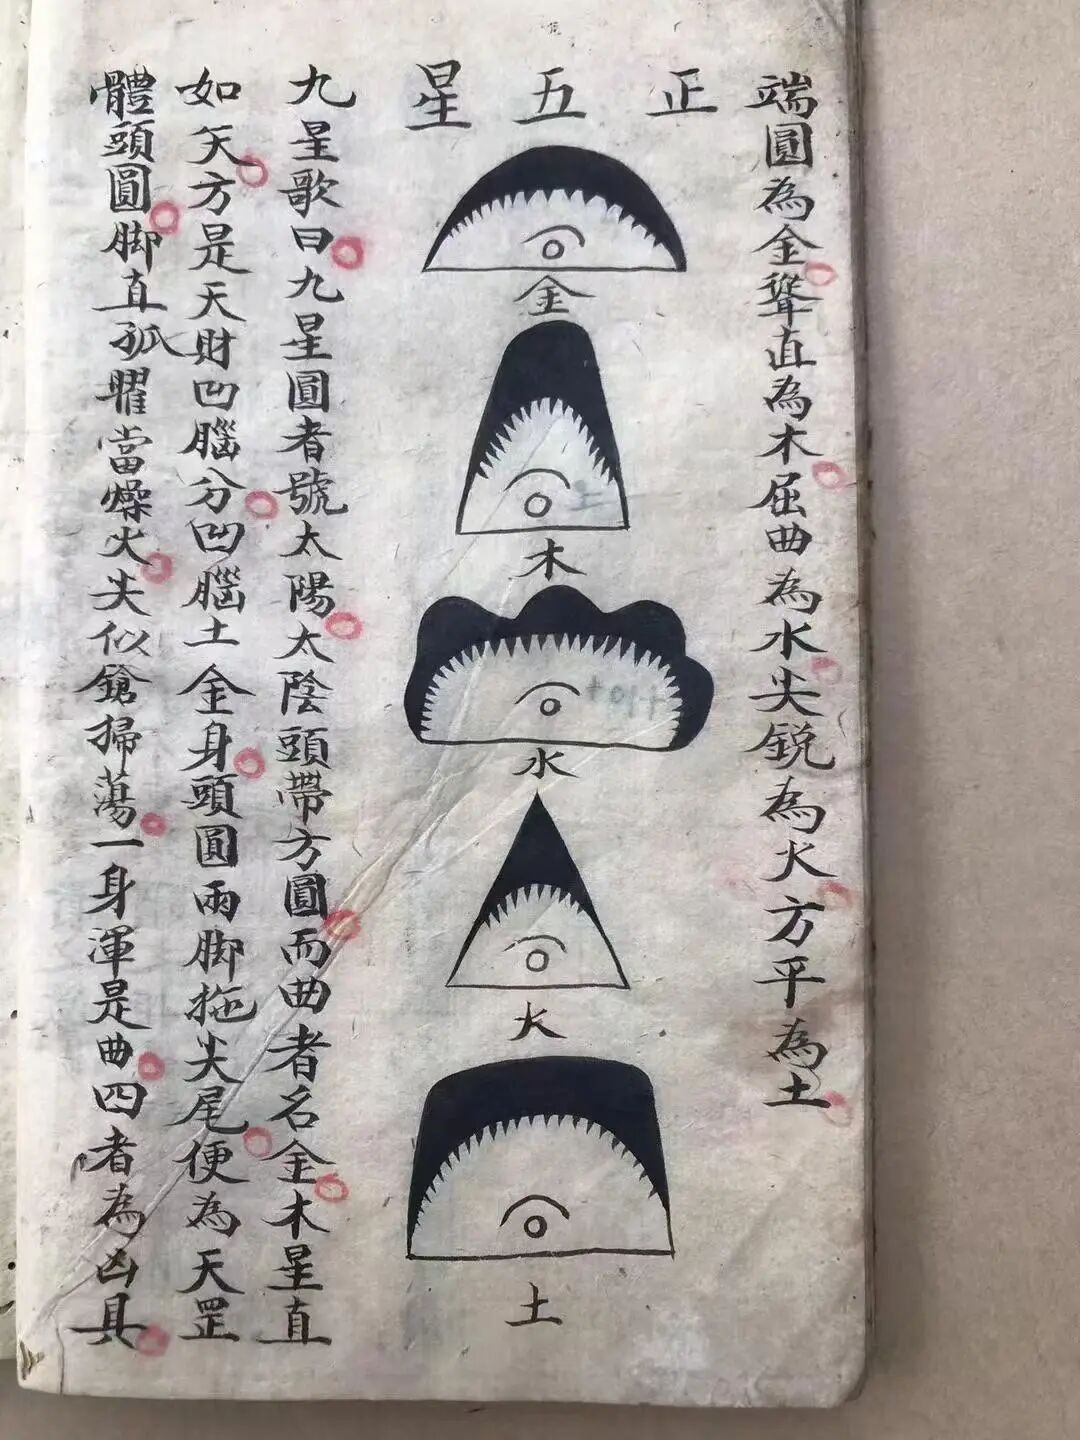 端圓為金聳直為木屈曲為水尖鋭為火方平為土
正五星
金
木
水
火
土
九星歌曰九星圓者號太陽太陰頭帶方圓而曲者名金木星直
如矢方是天財凹腦分凹腦土金身頭圓兩脚拖尖尾便為天罡
體頭圓脚直孤曜當燥火尖似鎗掃蕩一身渾是曲四者為凶具